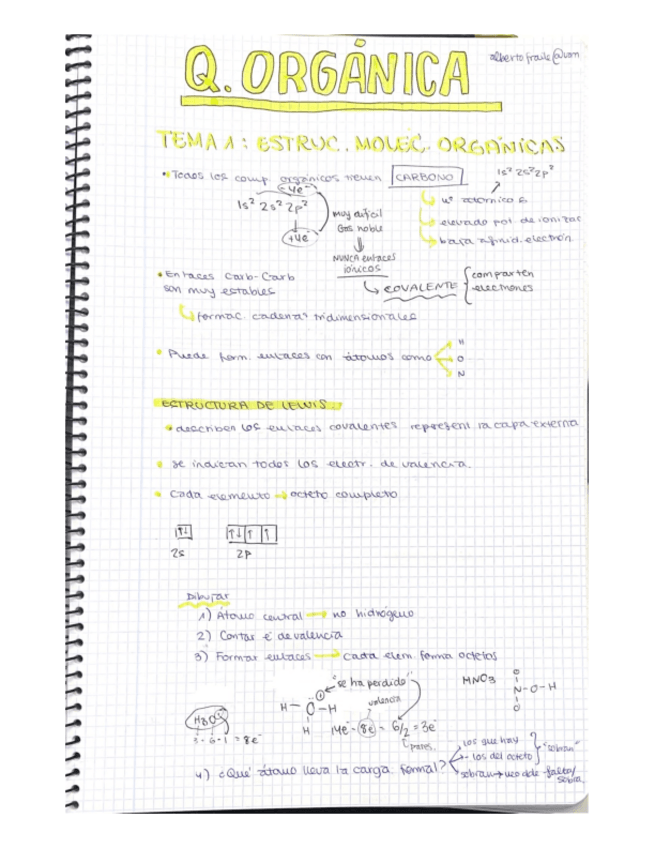 Q. ORGÁNICA
TEMA 1: ESTRUC. MOLEC. ORGÁNICAS
• Todos los comp. orgánicos tienen CARBONO
1s² 2s² 2p²
-4e⁻
1s² 2s² 2p²
+4e⁻
muy difícil
Gas noble
NUNCA enlaces
iónicos
COVALENTE
comparten
electrones
nº atómico 6
elevado pot. de ionizac
baja afinid. electrón.
• Enlaces Carb-Carb
son muy estables
formac. cadenas tridimensionales
• Puede form. enlaces con átomos como
H
O
N
ESTRUCTURA DE LEWIS.
• describen los enlaces covalentes represent. la capa externa
• se indican todos los electr. de valencia.
• Cada elemento → octeto completo
↑↓ ↑↓ ↑ ↑
2s 2p
Dibujar
1) Átomo central → no hidrógeno
2) Contar e⁻ de valencia
3) Formar enlaces → cada elem. forma octetos
"se ha perdido"
valencia
H₃O⁺
3+6-1 = 8e⁻
H-O-H
H
14e⁻-8e⁻ = 6/2 = 3e⁻
pares
MNO3
O
N-O-H
O
4) ¿Qué átomo lleva la carga formal?
los que hay
- los del octeto
"sobran"
sobran → nº de e⁻ falta/
sobra